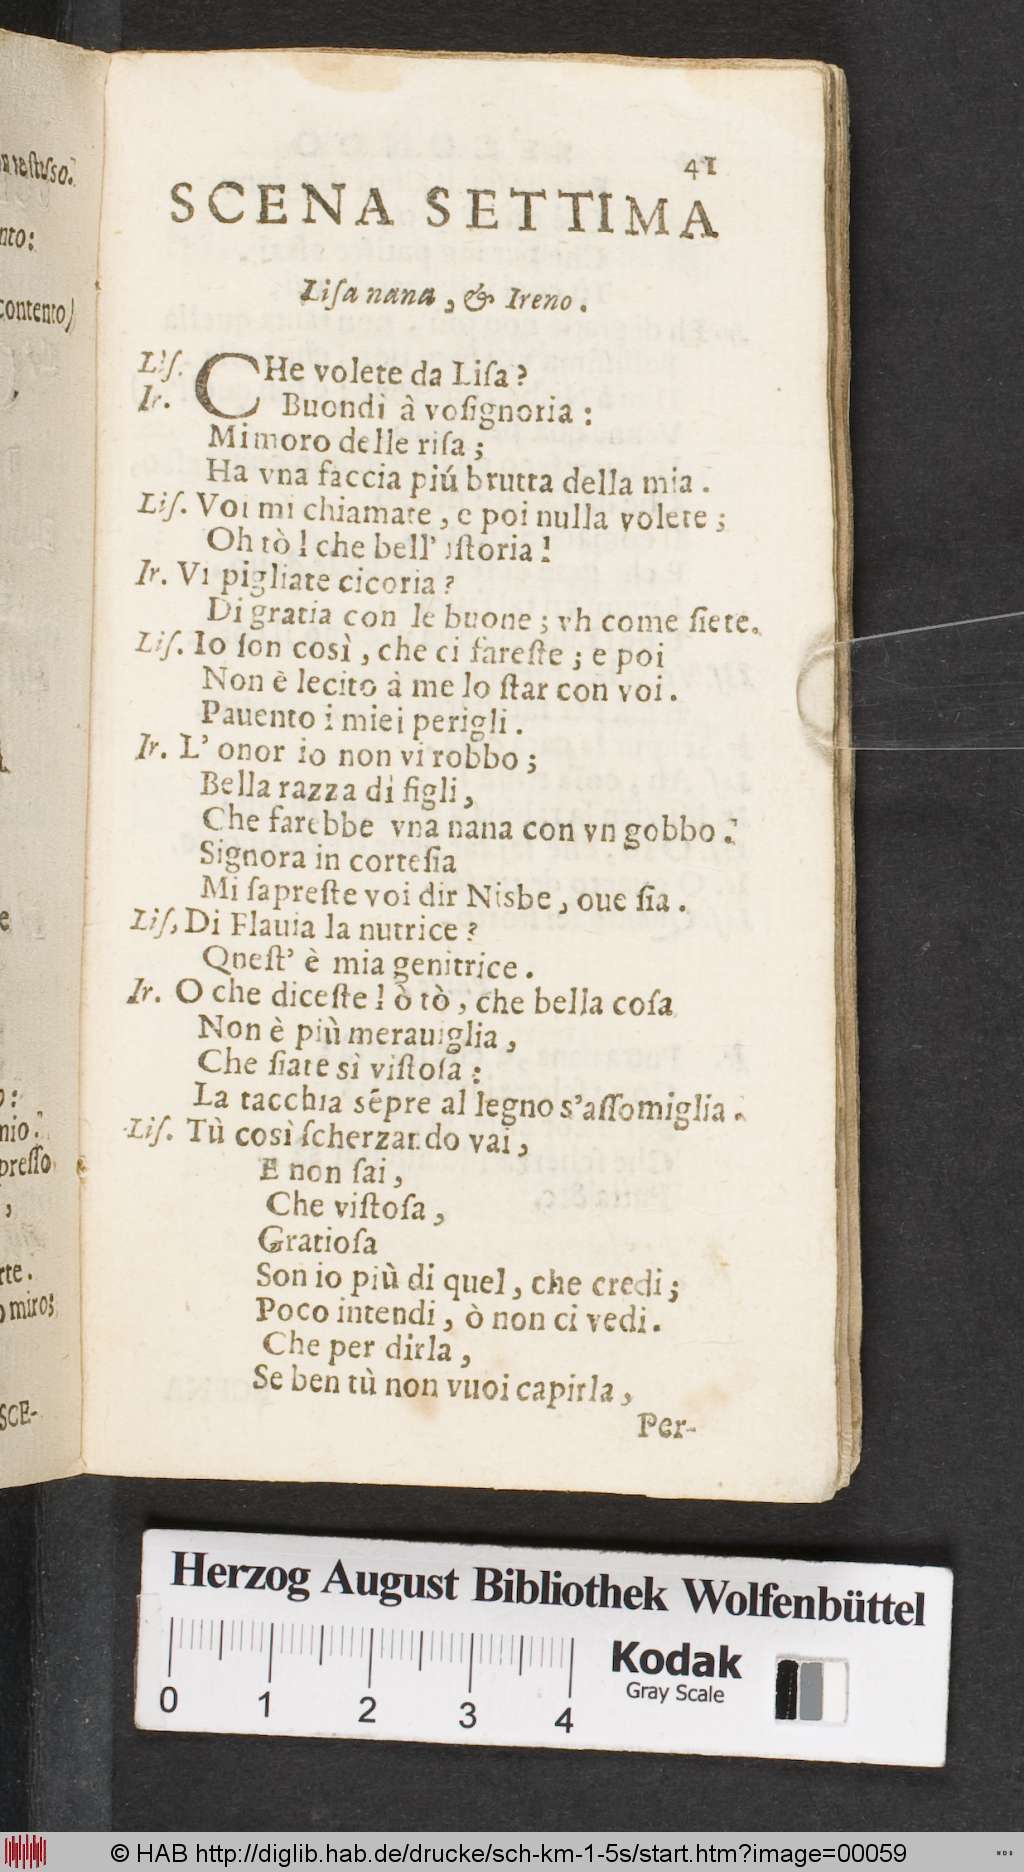 41
SCENA SETTIMA
Liſa nana, & Ireno.
Liſ. CHe volete da Liſa?
Ir. Buondì â voſignoria:
Mi moro delle riſa;
Ha vna faccia piú brutta della mia.
Liſ. Voi mi chiamate, e poi nulla volete;
Oh tò! che bell' iſtoria!
Ir. Vi pigliate cicoria?
Di gratia con le buone; vh come ſiete.
Liſ. Io ſon così, che ci fareſte; e poi
Non è lecito à me lo ſtar con voi.
Pauento i miei perigli.
Ir. L' onor io non vi robbo;
Bella razza di figli,
Che farebbe vna nana con vn gobbo.
Signora in corteſia
Mi ſapreſte voi dir Nisbe, oue ſia.
Liſ, Di Flauia la nutrice?
Queſt' è mia genitrice.
Ir. O che diceſte! ò tò, che bella coſa
Non è più merauiglia,
Che ſiate sì viſtoſa:
La tacchia sẽpre al legno s'aſſomiglia.
Liſ. Tù così ſcherzando vai,
E non ſai,
Che viſtoſa,
Gratioſa
Son io più di quel, che credi;
Poco intendi, ò non ci vedi.
Che per dirla,
Se ben tù non vuoi capirla,
Per-
nto:
contento)
nio.
preſſo
rte.
o miro;
SCE-
Herzog August Bibliothek Wolfenbüttel
Kodak
Gray Scale
0 1 2 3 4
© HAB http://diglib.hab.de/drucke/sch-km-1-5s/start.htm?image=00059